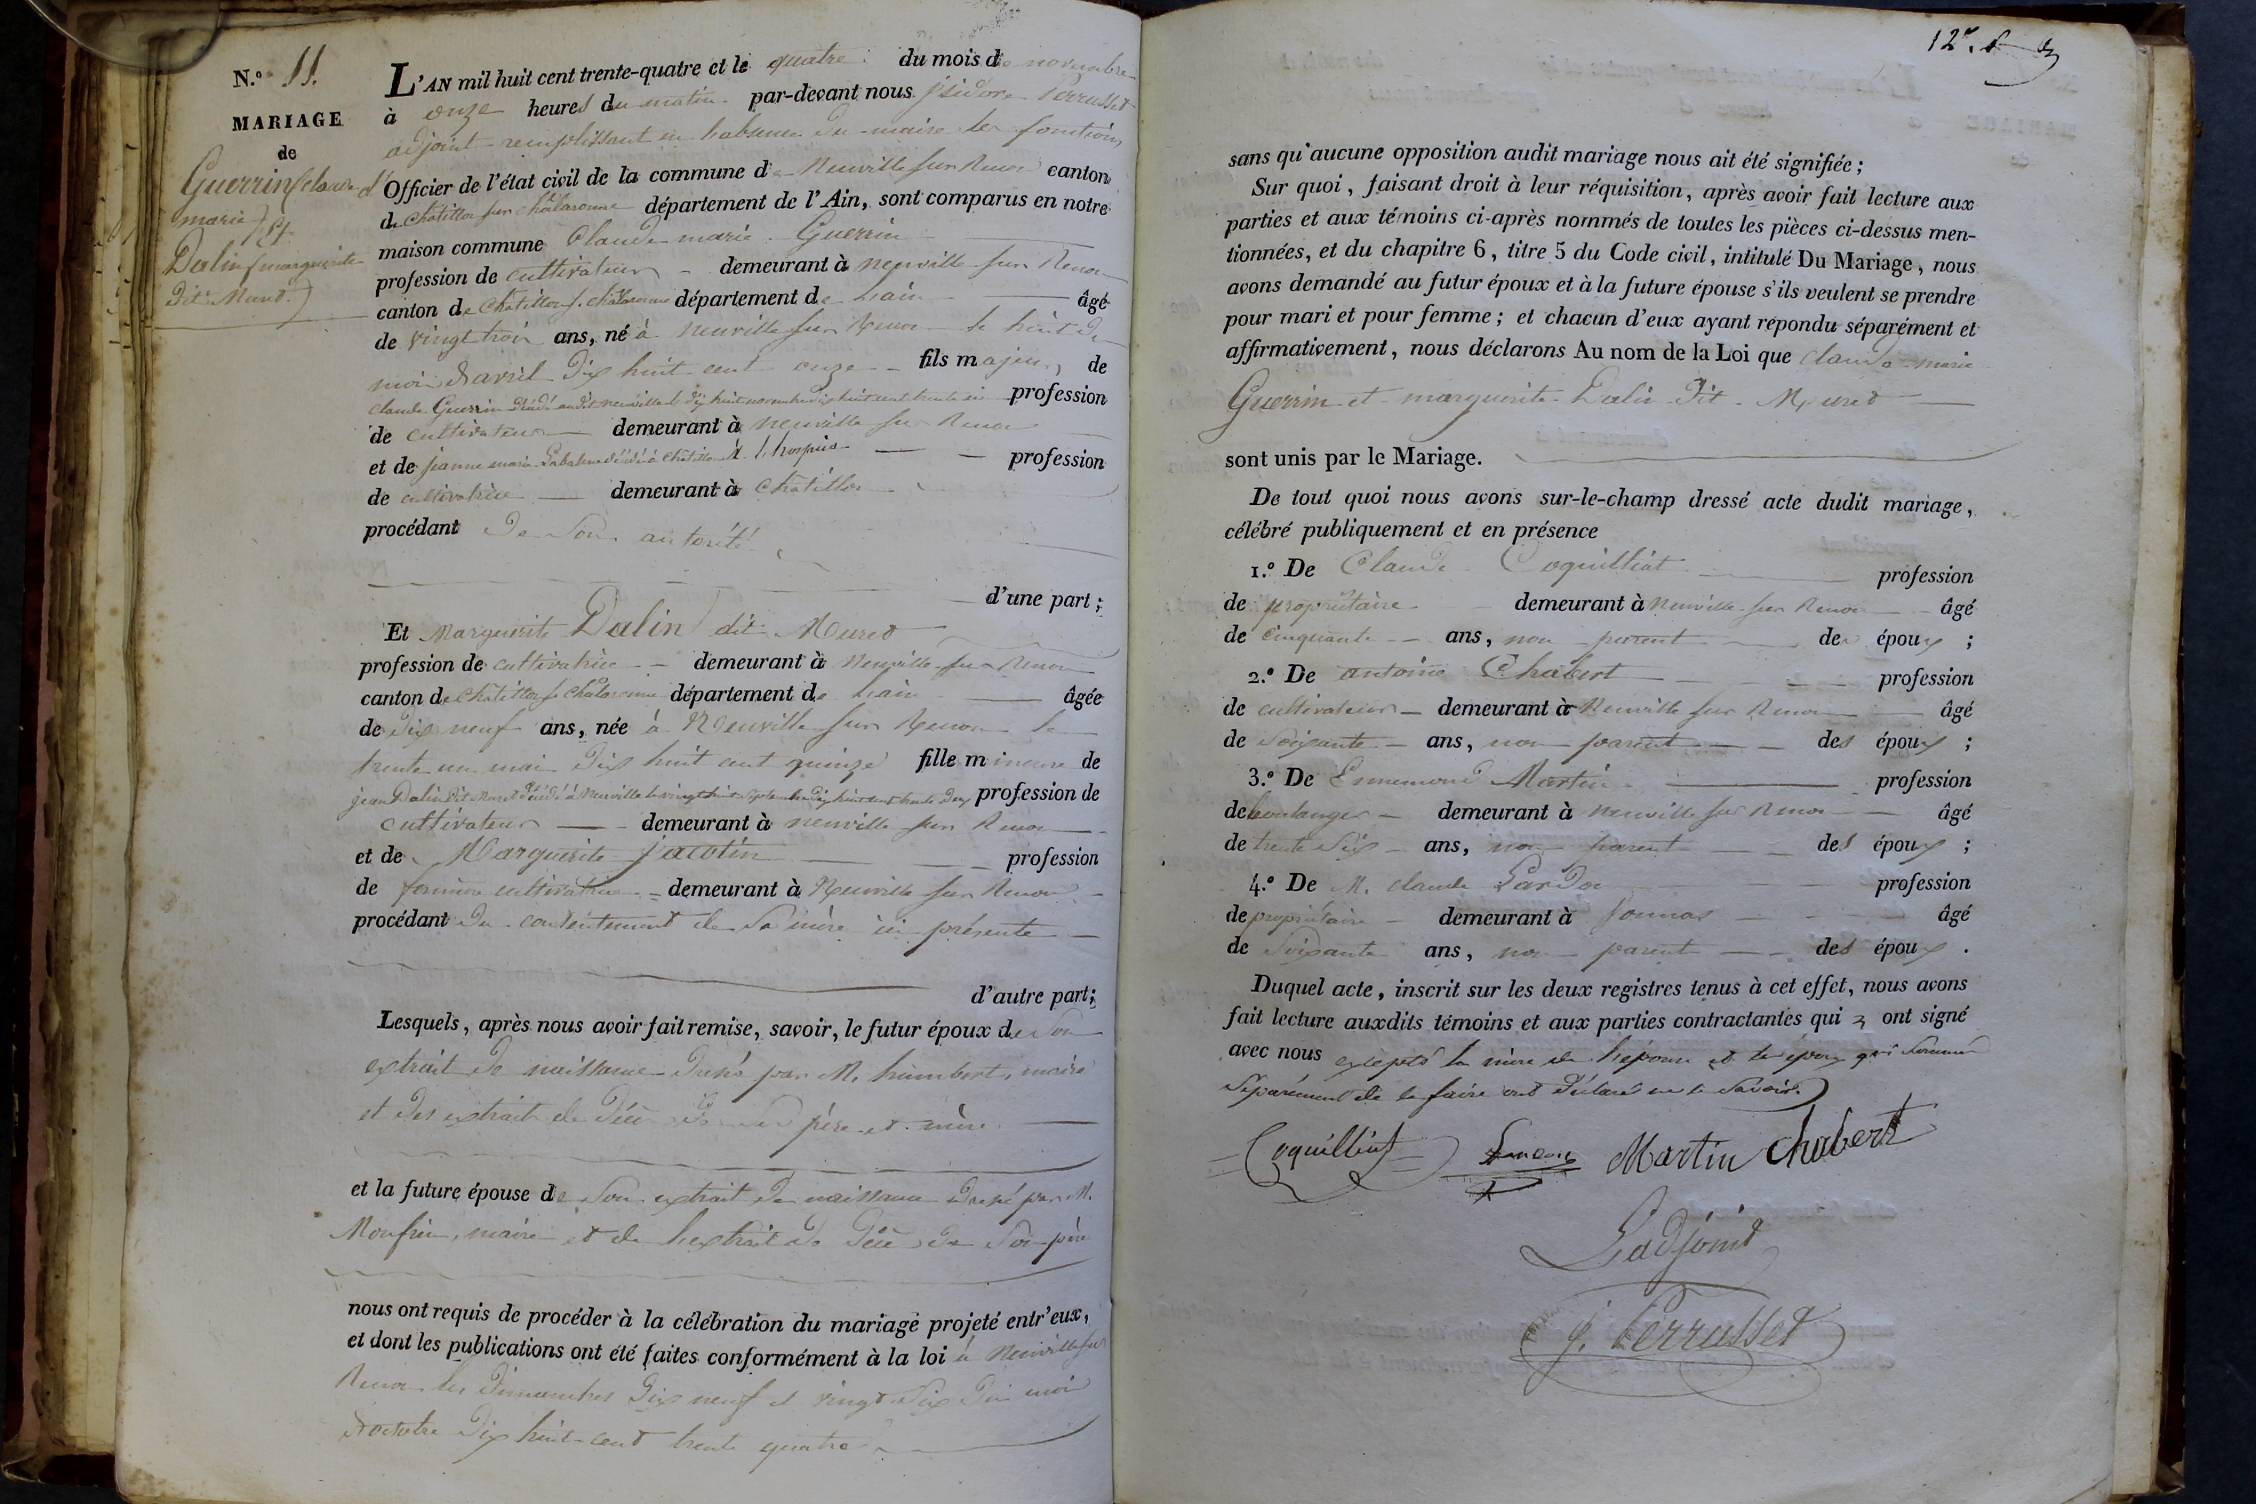 N.o 11.
MARIAGE
de
Guerrin (claude
marie) Et
Dalin (marguerite
dit Muret.)
L'AN mil huit cent trente-quatre et le quatre du mois de novembre
à onze heures du matin par-devant nous jsidore Perrusset
adjoint remplissant en l'absence du maire les fonctions
d'Officier de l'état civil de la commune de Neuville sur Renon canton
de Châtillon sur Chalaronne département de l'Ain, sont comparus en notre
maison commune Claude marie Guerrin
profession de cultivateur demeurant à neuville sur Renon
canton de Châtillon s. chalaronne département de Lain âgé
de vingt trois ans, né à neuville sur Renon le huit du
mois d'avril dix huit cent onze fils majeur de
claude Guerrin décédé audit neuville le dix huit novembre dix huit cent trente profession
de cultivateur demeurant à neuville sur Renon
et de jeanne marie décédée à Châtillon à l'hospice profession
de cultivatrice demeurant à Châtillon
procédant de son autorité
d'une part ;
Et Marguerite Dalin dit Muret
profession de cultivatrice demeurant à Neuville sur Renon
canton de Châtillon s. Chalaronne département de Lain âgée
de dix neuf ans, née à Neuville sur Renon le
trente un mai dix huit cent quinze fille mineure de
jean Dalin dit Muret décédé à Neuville le vingt huit septembre dix huit cent trente deux profession de
cultivateur demeurant à neuville sur Renon
et de Marguerite jacotin profession
de fermière cultivatrice demeurant à Neuville sur Renon
procédant du consentement de sa mère ici présente
d'autre part ;
Lesquels, après nous avoir fait remise, savoir, le futur époux de son
extrait de naissance dressé par M. humbert, maire
et des extraits de décès de ses père et mère
et la future épouse de son extrait de naissance dressé par M.
Monfrin, maire et de l'extrait de décès de son père
nous ont requis de procéder à la célébration du mariage projeté entr'eux,
et dont les publications ont été faites conformément à la loi à Neuville sur
Renon les dimanches dix neuf et vingt six du mois
d'octobre dix huit cent trente quatre
12e.
sans qu'aucune opposition audit mariage nous ait été signifiée ;
Sur quoi, faisant droit à leur réquisition, après avoir fait lecture aux
parties et aux témoins ci-après nommés de toutes les pièces ci-dessus men-
tionnées, et du chapitre 6, titre 5 du Code civil, intitulé Du Mariage, nous
avons demandé au futur époux et à la future épouse s'ils veulent se prendre
pour mari et pour femme ; et chacun d'eux ayant répondu séparément et
affirmativement, nous déclarons Au nom de la Loi que claude marie
Guerrin et marguerite Dalin dit Muret
sont unis par le Mariage.
De tout quoi nous avons sur-le-champ dressé acte dudit mariage,
célébré publiquement et en présence
1.o De Claude Coquilliat profession
de propriétaire demeurant à Neuville sur Renon âgé
de cinquante ans, non parent des époux ;
2.o De antoine Chabert profession
de cultivateur demeurant à Neuville sur Renon âgé
de soixante ans, non parent des époux ;
3.o De Ennemond Martin profession
de boulanger demeurant à neuville sur Renon âgé
de trente six ans, non parent des époux ;
4.o De M. claude profession
de propriétaire demeurant à Sonnas âgé
de soixante ans, non parent des époux .
Duquel acte, inscrit sur les deux registres tenus à cet effet, nous avons
fait lecture auxdits témoins et aux parties contractantes qui ont signé
avec nous excepté la mère de l'épouse et les époux qui sommés
séparément de le faire ont déclaré ne le savoir.
Coquilliat Martin Chabert
Ladjoint
j. Perrusset